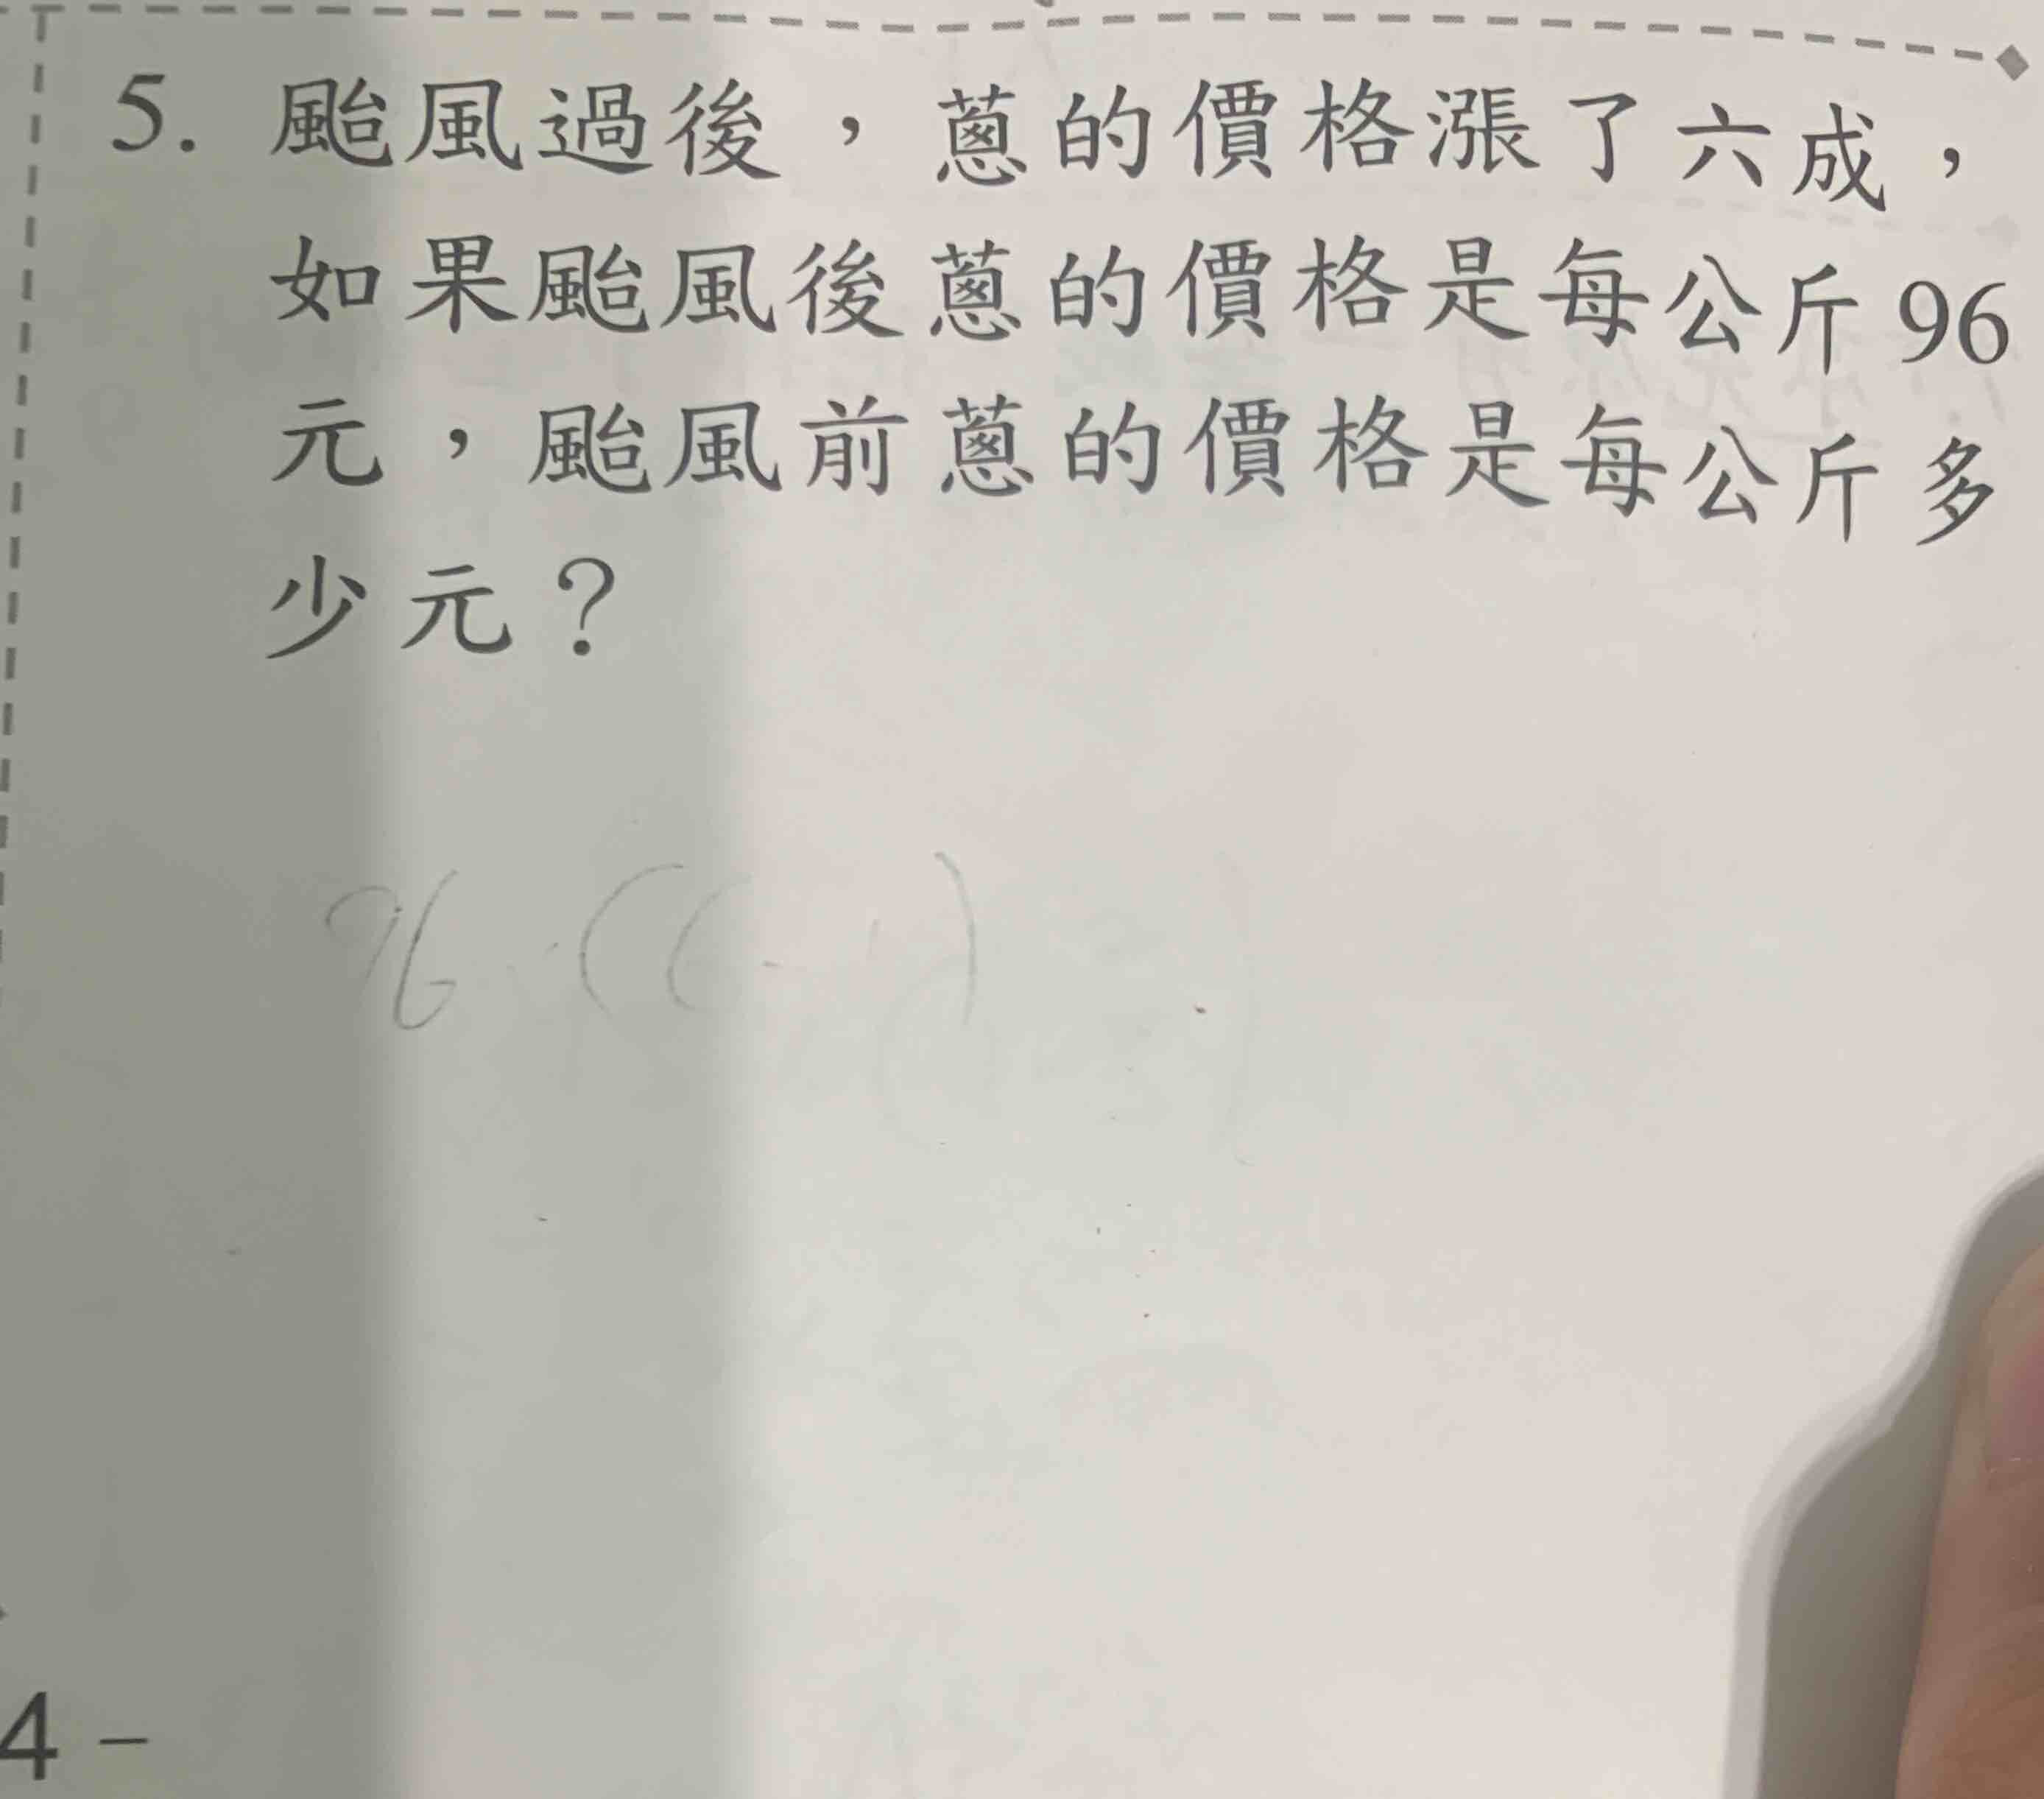 5. 颱風過後，蔥的價格漲了六成，
如果颱風後蔥的價格是每公斤96
元，颱風前蔥的價格是每公斤多
少元？
96
4－